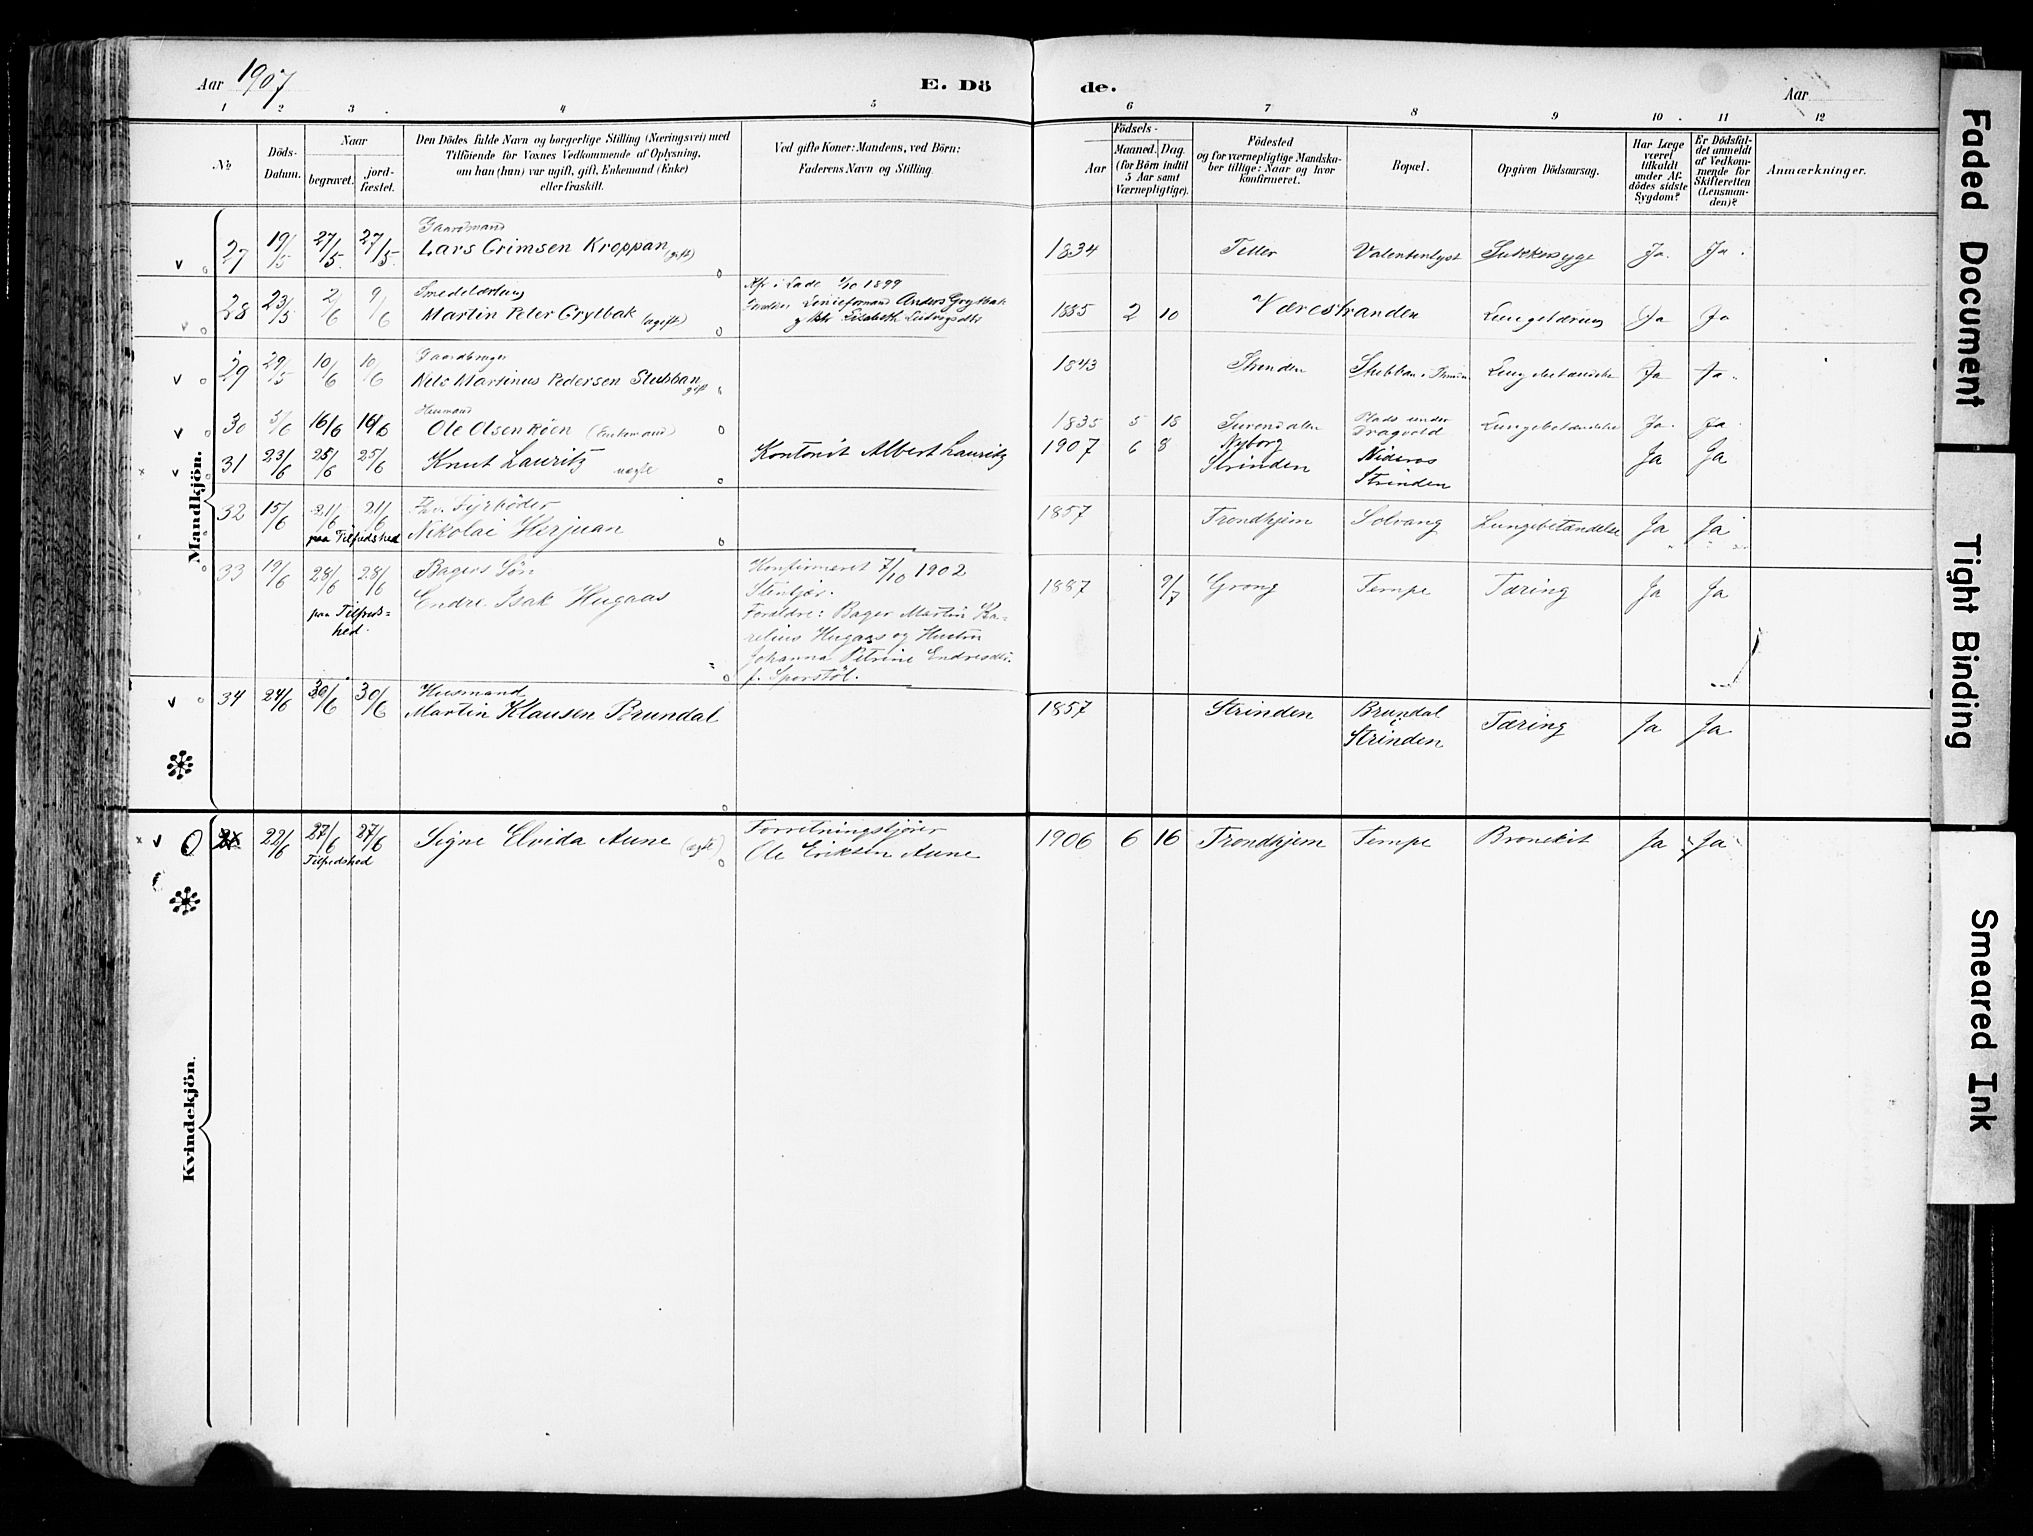 Aar 1907
E. Dö
de.
Aar
1 2 3 4 5 6 7 8 9 10. 11 12
No
Döds-
Datum.
Naar
begravet.
jord-
fæstet.
Den Dödes fulde Navn og borgerlige Stilling (Næringsvei) med
Tilföiende for Voxnes Vedkommende af Oplysning,
om han (hun) var ugift, gift, Enkemand (Enke)
eller fraskilt.
Ved gifte Koner: Mandens, ved Börn:
Faderens Navn og Stilling.
Födsels-
Aar
Maaned. Dag.
(for Börn indtil
5 Aar samt
Værnepligtige).
Födested
og for værnepligtige Mandska-
ber tillige: Naar og hvor
konfirmeret.
Bopæl.
Opgiven Dödsaarsag.
Har Læge
været
tilkaldt
under Af-
dödes sidste
Sygdom?
Er Dödsfal-
det anmeldt
af Vedkom-
mende for
Skifteretten
(Lensman-
den)?
Anmærkninger.
Mandkjön.
Gaardmand
27 19/5 27/5 27/5 Lars Grimsen Kroppan (gift) 1834 Tiller Valentinlyst Sukkersyge Ja. Ja.
Smedelærling
28 23/5 2/6 9/6 Martin Peter Grytbak (ugift)
Kfr i Lade 1/10 1899
Anders Grytbak
Elisabeth Ludvigsdtr
1885 2 10 Værestranden Ja Ja
Gaardbruger
29 29/5 10/6 10/6 Nels Martinus Pedersen Stubban gift 1843 Strinden Stubban Lungebetændelse Ja Ja
Husmand
30 5/6 16/6 16/6 Ole Olsen Röen (Enkemand) 1835 5 15 Surendalen Plads under
Dragvold Lungebetændelse Ja. Ja.
31 23/6 25/6 25/6 Knut Lauritz uægte Kontorist Albert Lauritz 1907 6 8 Nyborg
Strinden Nideros
Strinden Ja Ja
32 15/6 21/6 21/6 Fhv. Fyrböder
paa Tilfredshed Nikolai Hirjuan 1857 Trondhjem Solvang Lungebetændelse Ja Ja
33 19/6 28/6 28/6 Bagers Sön
Endre Isak Hugaas
paa Tilfreds-
hed.
Konfirmeret 7/10 1902
Stenkjær.
Forældre: Bager Martin Ka-
relius Hugaas og Hustru
Johanna Petrine Endresdtr.
f. Sporstöl.
1887 9/7 Grong Tempe Tæring Ja Ja
34 24/6 30/6 30/6 Husmand
Martin Klausen Brundal 1857 Strinden Brundal
Strinden Tæring Ja Ja
Kvindekjön.
22/6 27/6 27/6 Signe Elvida Aune (ægte)
Tilfredshed
Forretningsfjører
Ole Eriksen Aune
1906 6 16 Trondhjem Tempe Bronekit Ja Ja
Faded Document
Tight Binding
Smeared Ink